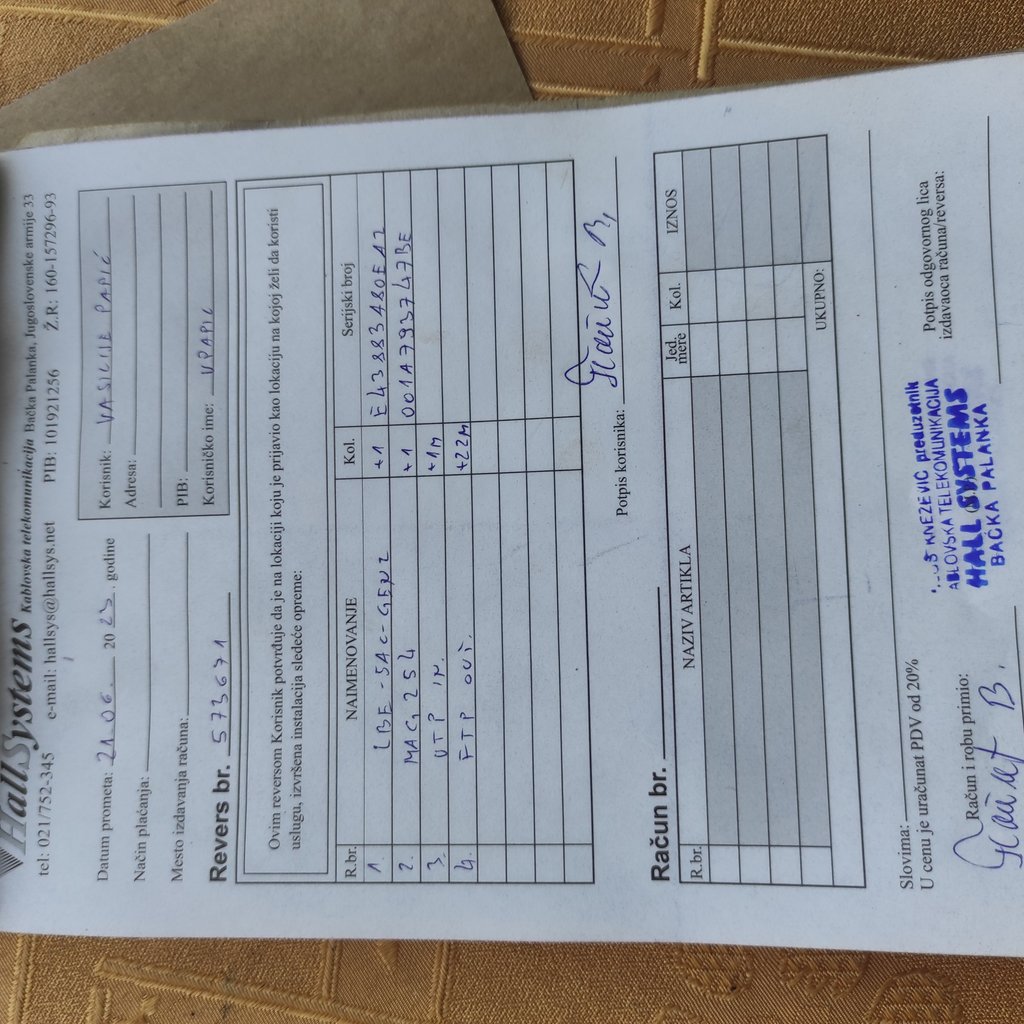 HallSystems Kablovska telekomunikacija Bačka Palanka, Jugoslovenske armije 33
tel: 021/752-345 e-mail: hallsys@hallsys.net PIB: 101921256 Ž.R: 160-157296-93
Datum prometa: 21.06. 2023. godine
Način plaćanja:
Mesto izdavanja računa:
Korisnik: VASILIJE PAPIĆ
Adresa:
PIB:
Korisničko ime: VPAPIC
Revers br. 573671
Ovim reversom Korisnik potvrđuje da je na lokaciji koju je prijavio kao lokaciju na kojoj želi da koristi
uslugu, izvršena instalacija sledeće opreme:
R.br. NAIMENOVANJE Kol. Serijski broj
1. LBE-5AC-GEN2 +1 E43883480EA2
2. MAG254 +1 001A793747BE
3. UTP IN. +1m
4. FTP OUT. +22m
Potpis korisnika:
Račun br.
R.br. NAZIV ARTIKLA Jed. mere Kol. IZNOS
UKUPNO:
Slovima:
U cenu je uračunat PDV od 20%
Račun i robu primio:
KNEZEVIĆ preduzetnik
KABLOVSKA TELEKOMUNIKACIJA
HALL SYSTEMS
BAČKA PALANKA
Potpis odgovornog lica
izdavaoca računa/reversa: